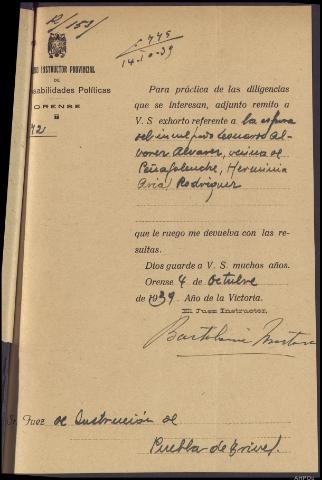 R/153/
6 775
14-10-39
INSTRUCTOR PROVINCIAL
DE
sabilidades Políticas
ORENSE
Para práctica de las diligencias
que se interesan, adjunto remito a
V. S exhorto referente a la esposa
del inculpado Leonardo Al-
varez Alvarez, vecina de
Peñafolenche, Herminia
Arias Rodriguez
que le ruego me devuelva con las re-
sultas.
Dios guarde a V. S. muchos años.
Orense 4 de Octubre
de 1939 Año de la Victoria.
El Juez Instructor,
Sr. Juez de Instrucción de
Puebla de Trives.